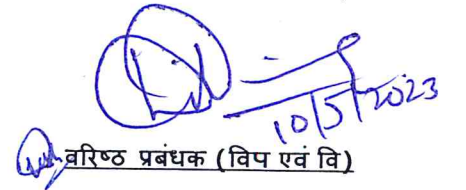 10/5/2023
वरिष्ठ प्रबंधक (विप एवं वि)